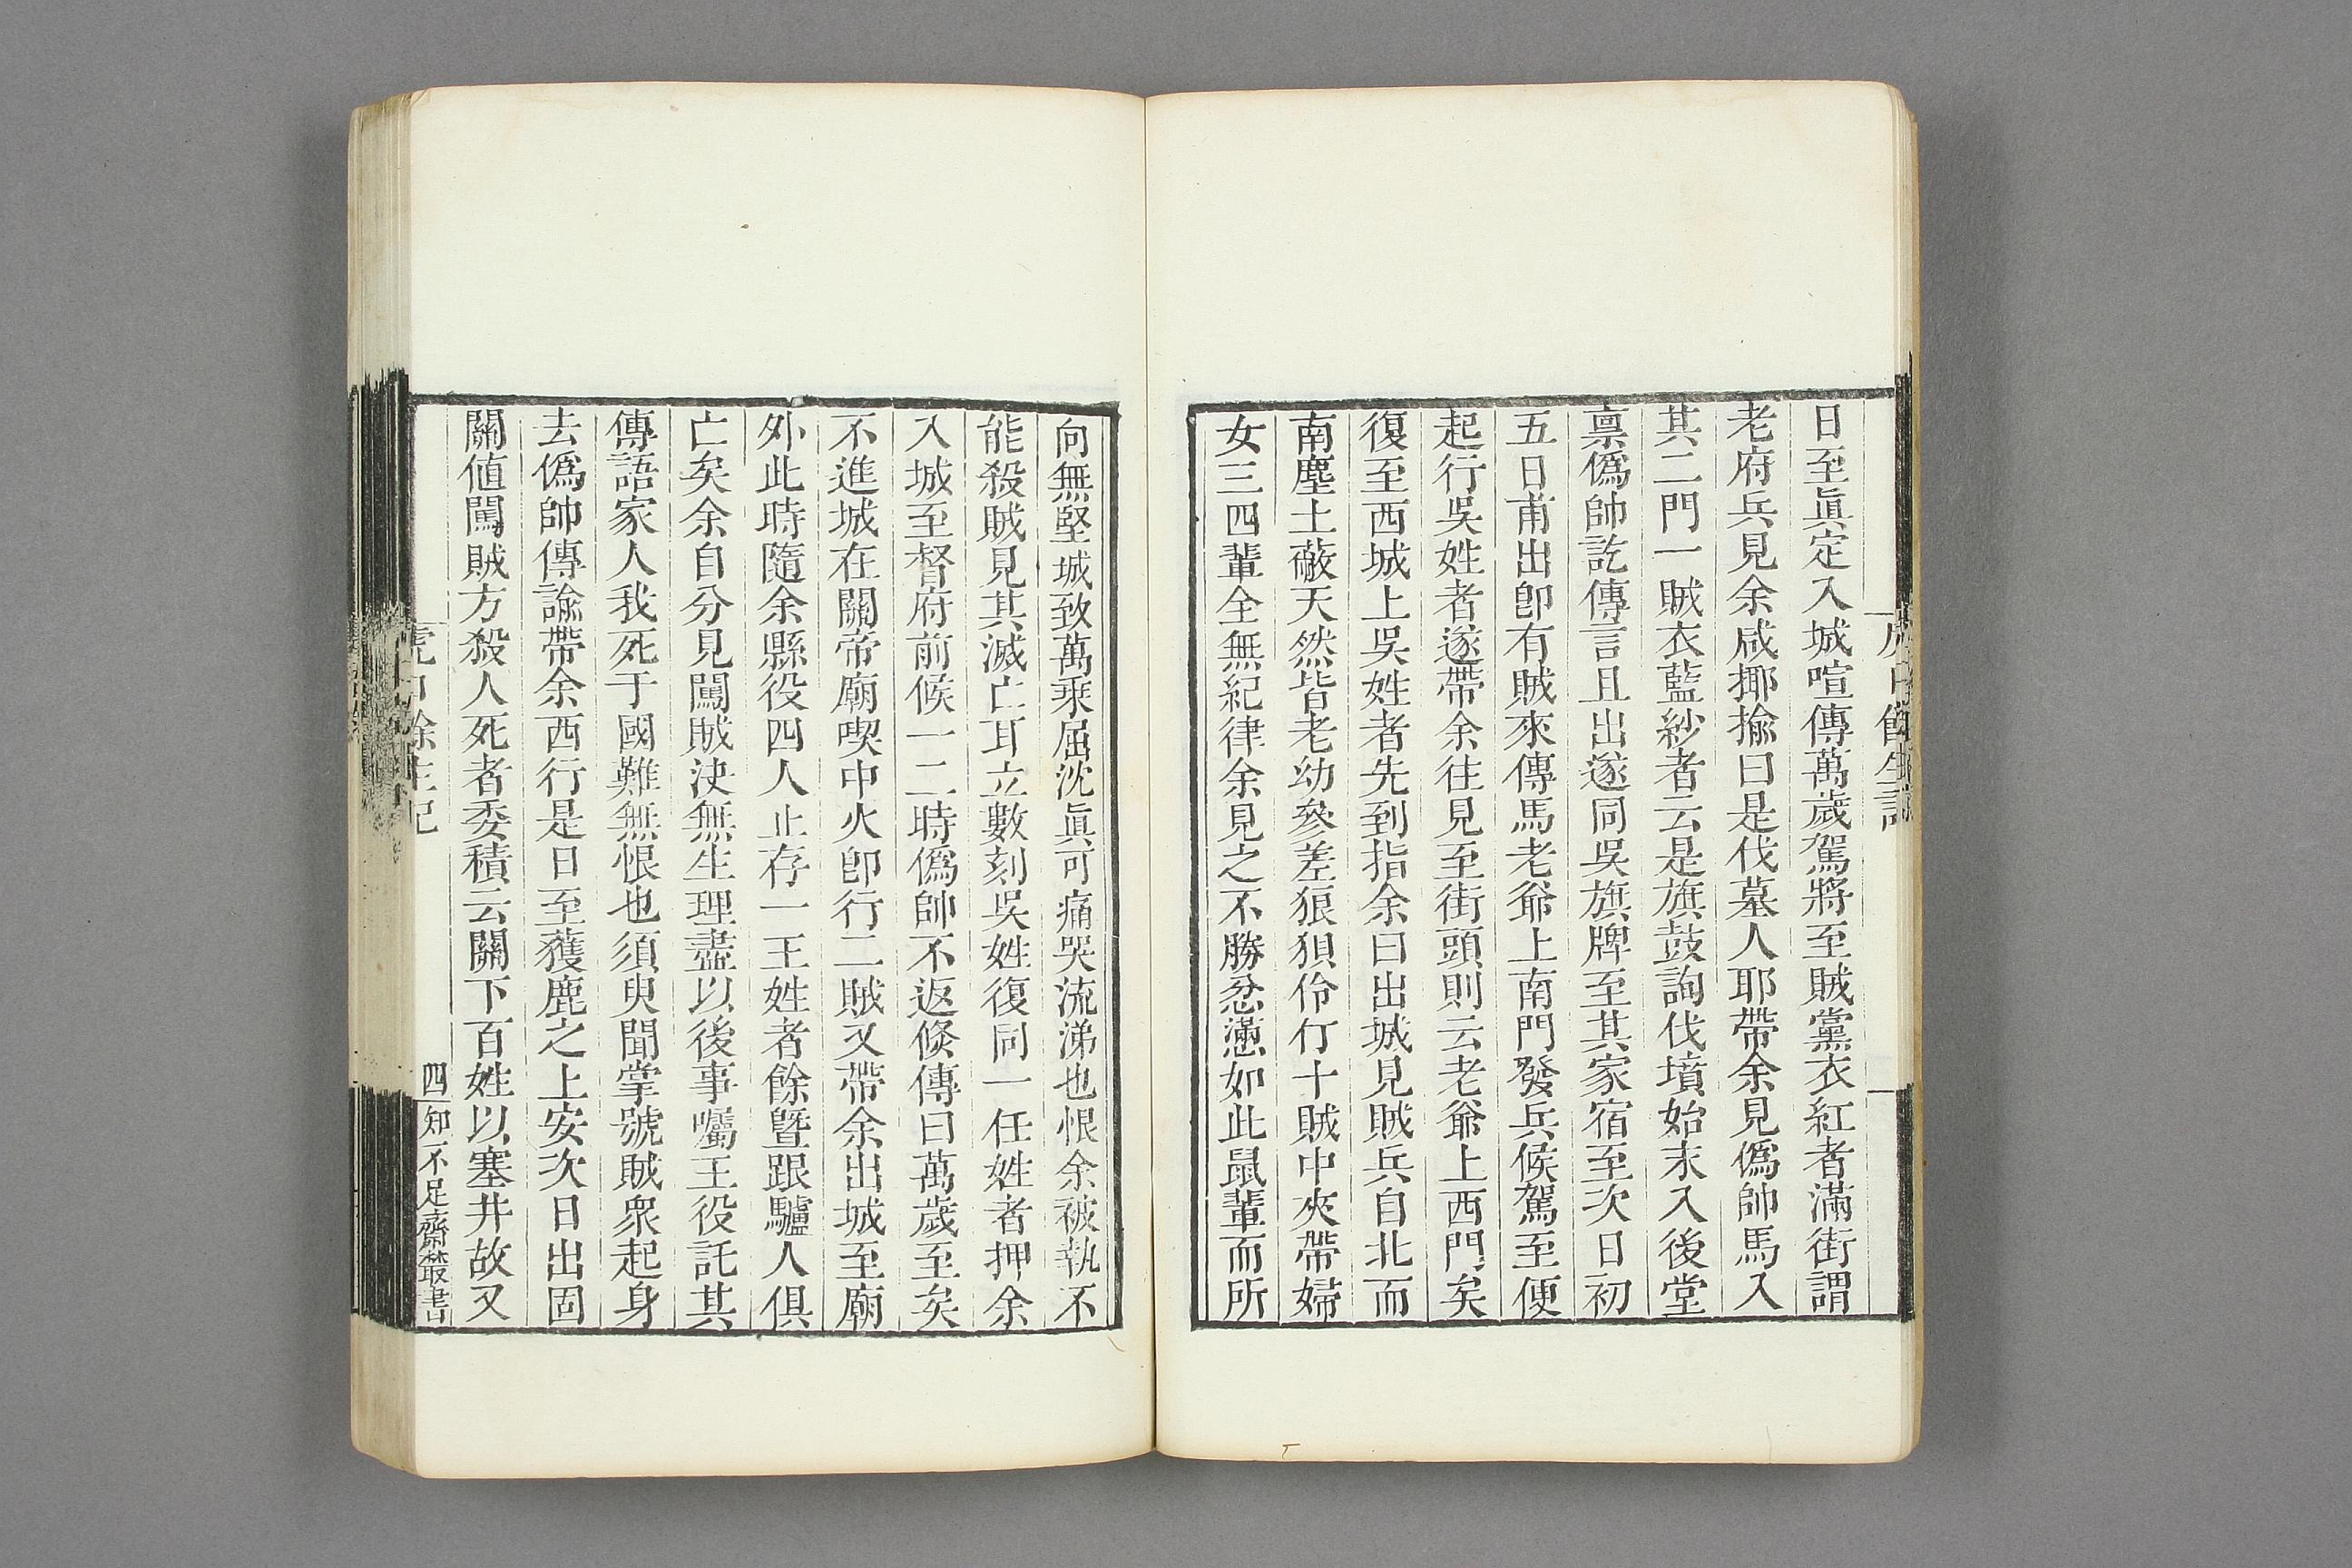 虎口餘生記
日至眞定入城喧傳萬歲駕將至賊黨衣紅者滿街謂
老府兵見余咸揶揄曰是伐墓人耶帶余見僞帥馬入
其二門一賊衣藍紗者云是旗鼓詢伐墳始末入後堂
禀僞帥訖傳言且出遂同吳旗牌至其家宿至次日初
五日甫出卽有賊來傳馬老爺上南門發兵候駕至便
起行吳姓者遂帶余往見至街頭則云老爺上西門矣
復至西城上吳姓者先到指余曰出城見賊兵自北而
南塵土蔽天然皆老幼參差狼狽伶仃十賊中夾帶婦
女三四輩全無紀律余見之不勝忿懣如此鼠輩而所
向無堅城致萬乘屈沈眞可痛哭流涕也恨余被執不
能殺賊見其滅亡耳立數刻吳姓復同一任姓者押余
入城至督府前候一二時僞帥不返倐傳曰萬歲至矣
不進城在關帝廟喫中火卽行二賊又帶余出城至廟
外此時隨余縣役四人止存一王姓者餘曁跟驢人俱
亡矣余自分見闖賊決無生理盡以後事囑王役託其
傳語家人我死于國難無恨也須臾聞掌號賊衆起身
去僞帥傳諭帶余西行是日至獲鹿之上安次日出固
關値闖賊方殺人死者委積云關下百姓以塞井故又
虎口餘生記
四
知不足齋叢書